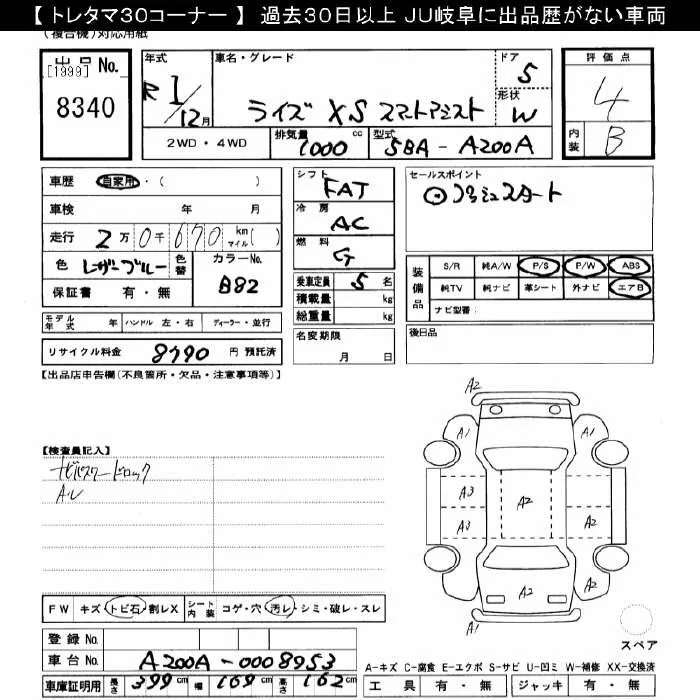 【 トレタマ30コーナー 】 過去30日以上 JU岐阜に出品歴がない車両
(複合機)対応用紙
出品 No.
[1999]
8340
年式 R 1/12月
車名・グレード ドア 5
ライズ XS スマートアシスト
形状 W
2WD ・ 4WD 排気量 1000 cc 型式 5BA - A200A
評価点 4
内装 B
車歴 自家用 ・ ( )
車検 年 月
走行 2 万 0 千 670 km マイル ( )
色 レーザーブルー 色替 カラーNo. B82
保証書 有 ・ 無
モデル年式 年 ハンドル 左 ・ 右 ディーラー ・ 並行
リサイクル料金 8790 円 預託済
シフト FAT
冷房 AC
燃料 G
乗車定員 5 名
積載量 kg
総重量 kg
名変期限 月 日
セールスポイント
⊙プッシュスタート
装備品 S/R 純A/W P/S P/W ABS
純TV 純ナビ 革シート 外ナビ エアB
ナビ型番:
後日品
【出品店申告欄(不良箇所・欠品・注意事項等)】
【検査員記入】
A・U
A2
A1 A1
A3 A2
A3 A2
A2
A1
スペア
FW キズ ・ トビ石 ・ 割レX シート内装 コゲ・穴 汚レ ・ シミ ・ 破レ ・ スレ
登録 No.
車台 No. A200A-0008953
車庫証明用 長さ 399cm 幅 169cm 高さ 162cm
A-キズ C-腐食 E-エクボ S-サビ U-凹ミ W-補修 XX-交換済
工具 有 ・ 無 ジャッキ 有 ・ 無